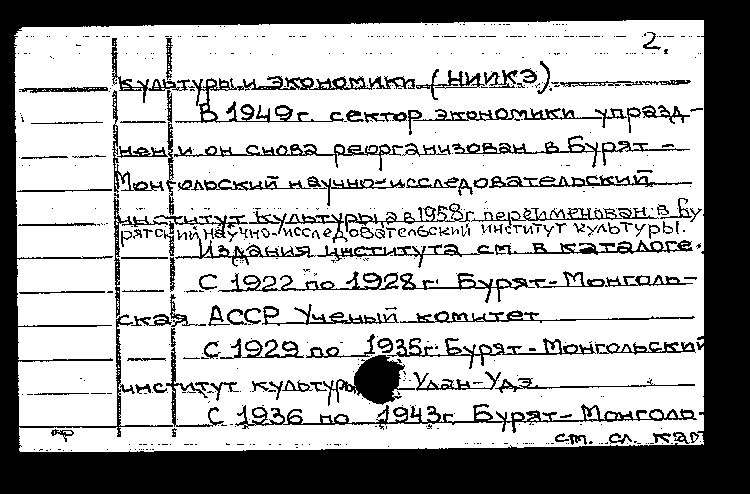 2.
культуры и экономики (НИИКЭ)
В 1949г. сектор экономики упразд-
нен и он снова реорганизован в Бурят-
Монгольский научно-исследовательский
институт культуры, а в 1958г. переименован в Бу
рятский научно-исследовательский институт культуры.
Издания института см. в каталоге:
С 1922 по 1928г. Бурят-Монголь-
ская АССР. Ученый комитет
С 1929 по 1935г. Бурят-Монгольский
институт культуры Улан-Удэ.
С 1936 по 1943г. Бурят-Монголь-
см. сл. кар